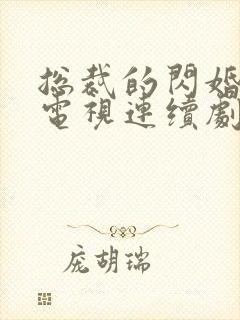 总裁的閃婚
電視連續劇
庞胡瑞